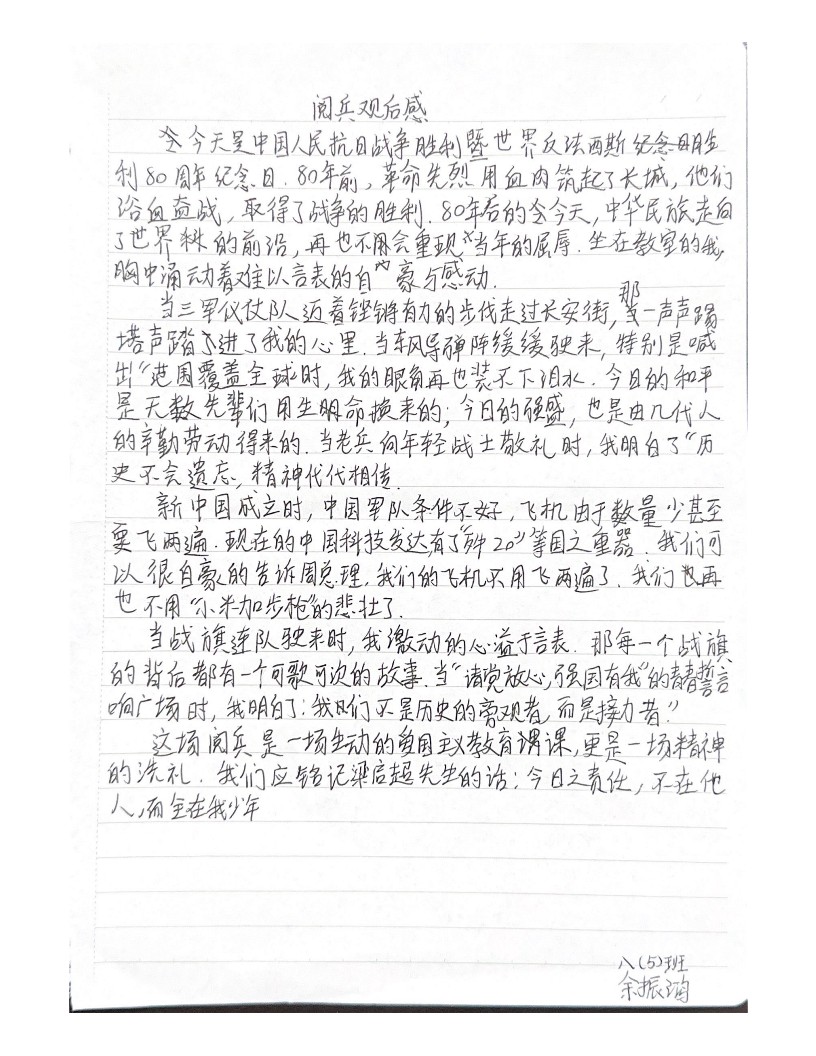 阅兵观后感
今天是中国人民抗日战争胜利暨世界反法西斯胜
利80周年纪念日.80年前,革命先烈用血肉筑起了长城,他们
浴血奋战,取得了战争的胜利.80年后的今天,中华民族走向
了世界的前沿,再也不会重现当年的屈辱.坐在教室的我,
胸中涌动着难以言表的自豪与感动.
当三军仪仗队迈着铿锵有力的步伐走过长安街,那一声声踢
塔声踏进了我的心里.当东风导弹阵缓缓驶来,特别是喊
出“范围覆盖全球”时,我的眼角再也装不下泪水.今日的和平
是无数先辈们用生命换来的;今日的强盛,也是由几代人
的辛勤劳动得来的.当老兵向年轻战士敬礼时,我明白了“历
史不会遗忘,精神代代相传.
新中国成立时,中国军队条件不好,飞机由于数量少甚至
要飞两遍.现在的中国科技发达,有了“歼20”等国之重器.我们可
以很自豪的告诉周总理,我们的飞机不用飞两遍了.我们再
也不用“小米加步枪”的悲壮了.
当战旗连队驶来时,我激动的心溢于言表.那每一个战旗
的背后都有一个可歌可泣的故事.当“请党放心,强国有我”的青春誓言
响广场时,我明白了:我们不是历史的旁观者,而是接力者."
这场阅兵是一场生动的爱国主义教育课,更是一场精神
的洗礼.我们应铭记梁启超先生的话:今日之责任,不在他
人,而全在我少年
八(5)班
余振